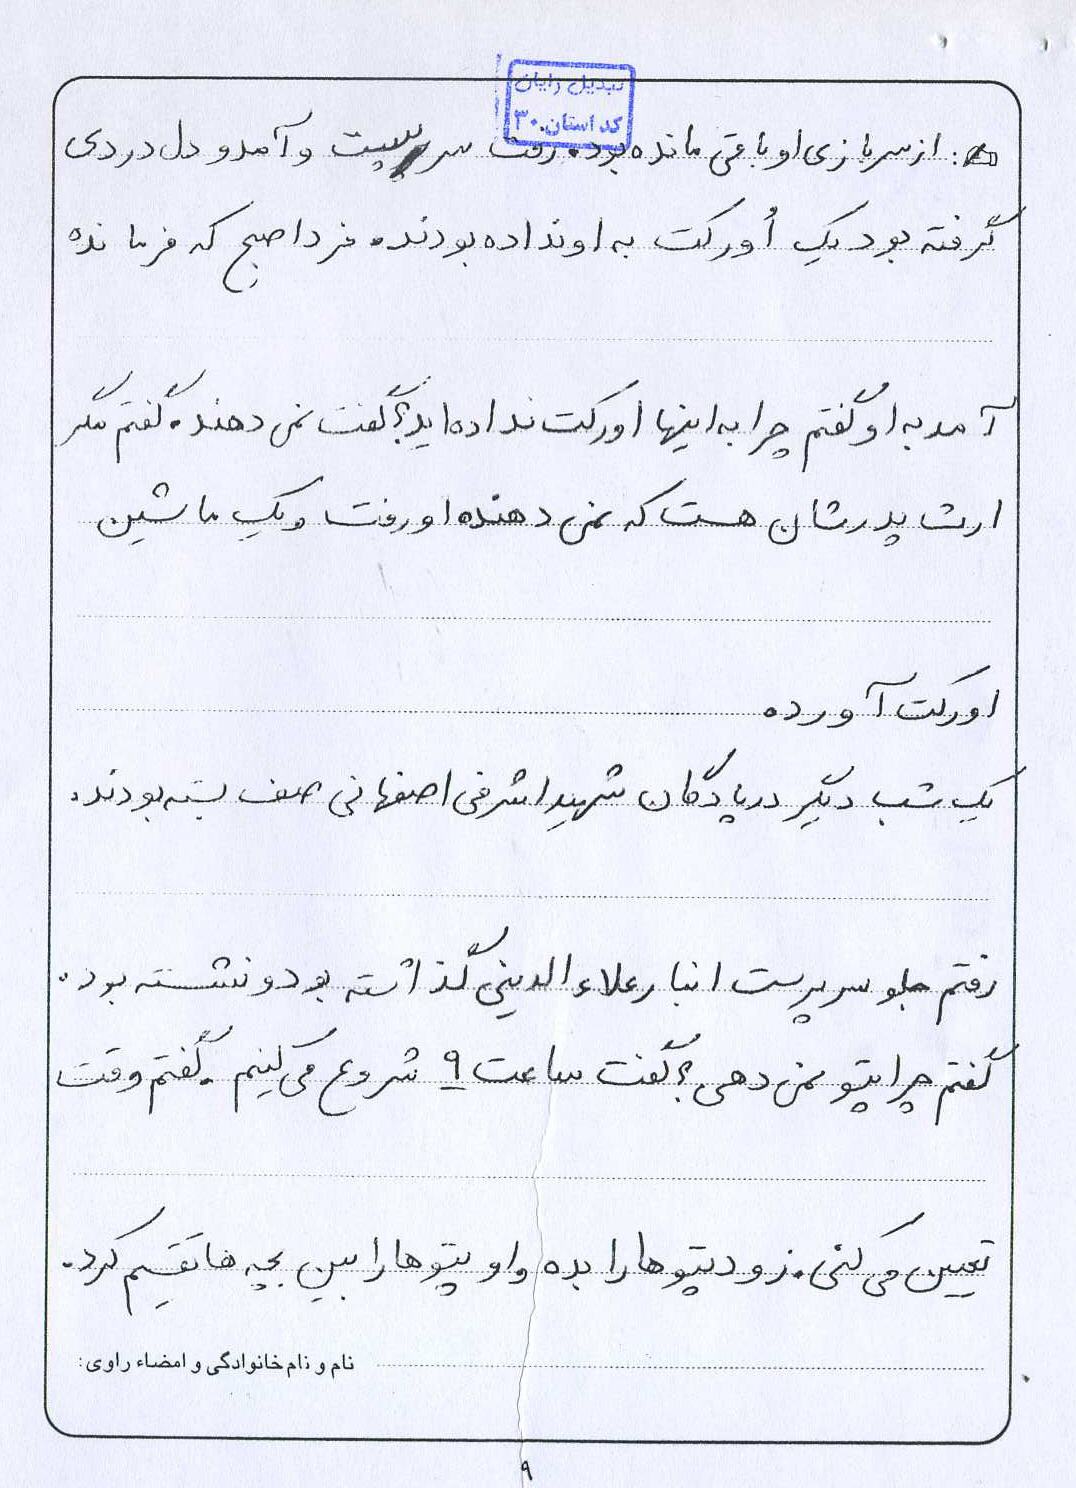 تبدیل رایان
کد استان ۳۰
: از سربازی او باقی مانده بود. رفت سر پست و آمد و دل دردی
گرفته بود یک اُورکت به او نداده بودند. فردا صبح که فرمانده
آمد به او گفتم چرا به اینها اورکت نداده اید؟ گفت نمی دهند. گفتم مگر
ارث پدرشان هست که نمی دهند او رفت و یک ماشین
اورکت آورد.
یک شب دیگر در پادگان شهید اشرفی اصفهانی صف بسته بودند.
رفتم جلو سرپرست انبار علاءالدینی گذاشته بود و نشسته بود.
گفتم چرا پتو نمی دهی؟ گفت ساعت ۹ شروع می کنیم. گفتم وقت
تعیین می کنی. زود پتوها را بده و او پتوها را بین بچه ها تقسیم کرد.
نام و نام خانوادگی و امضاء راوی:
۹